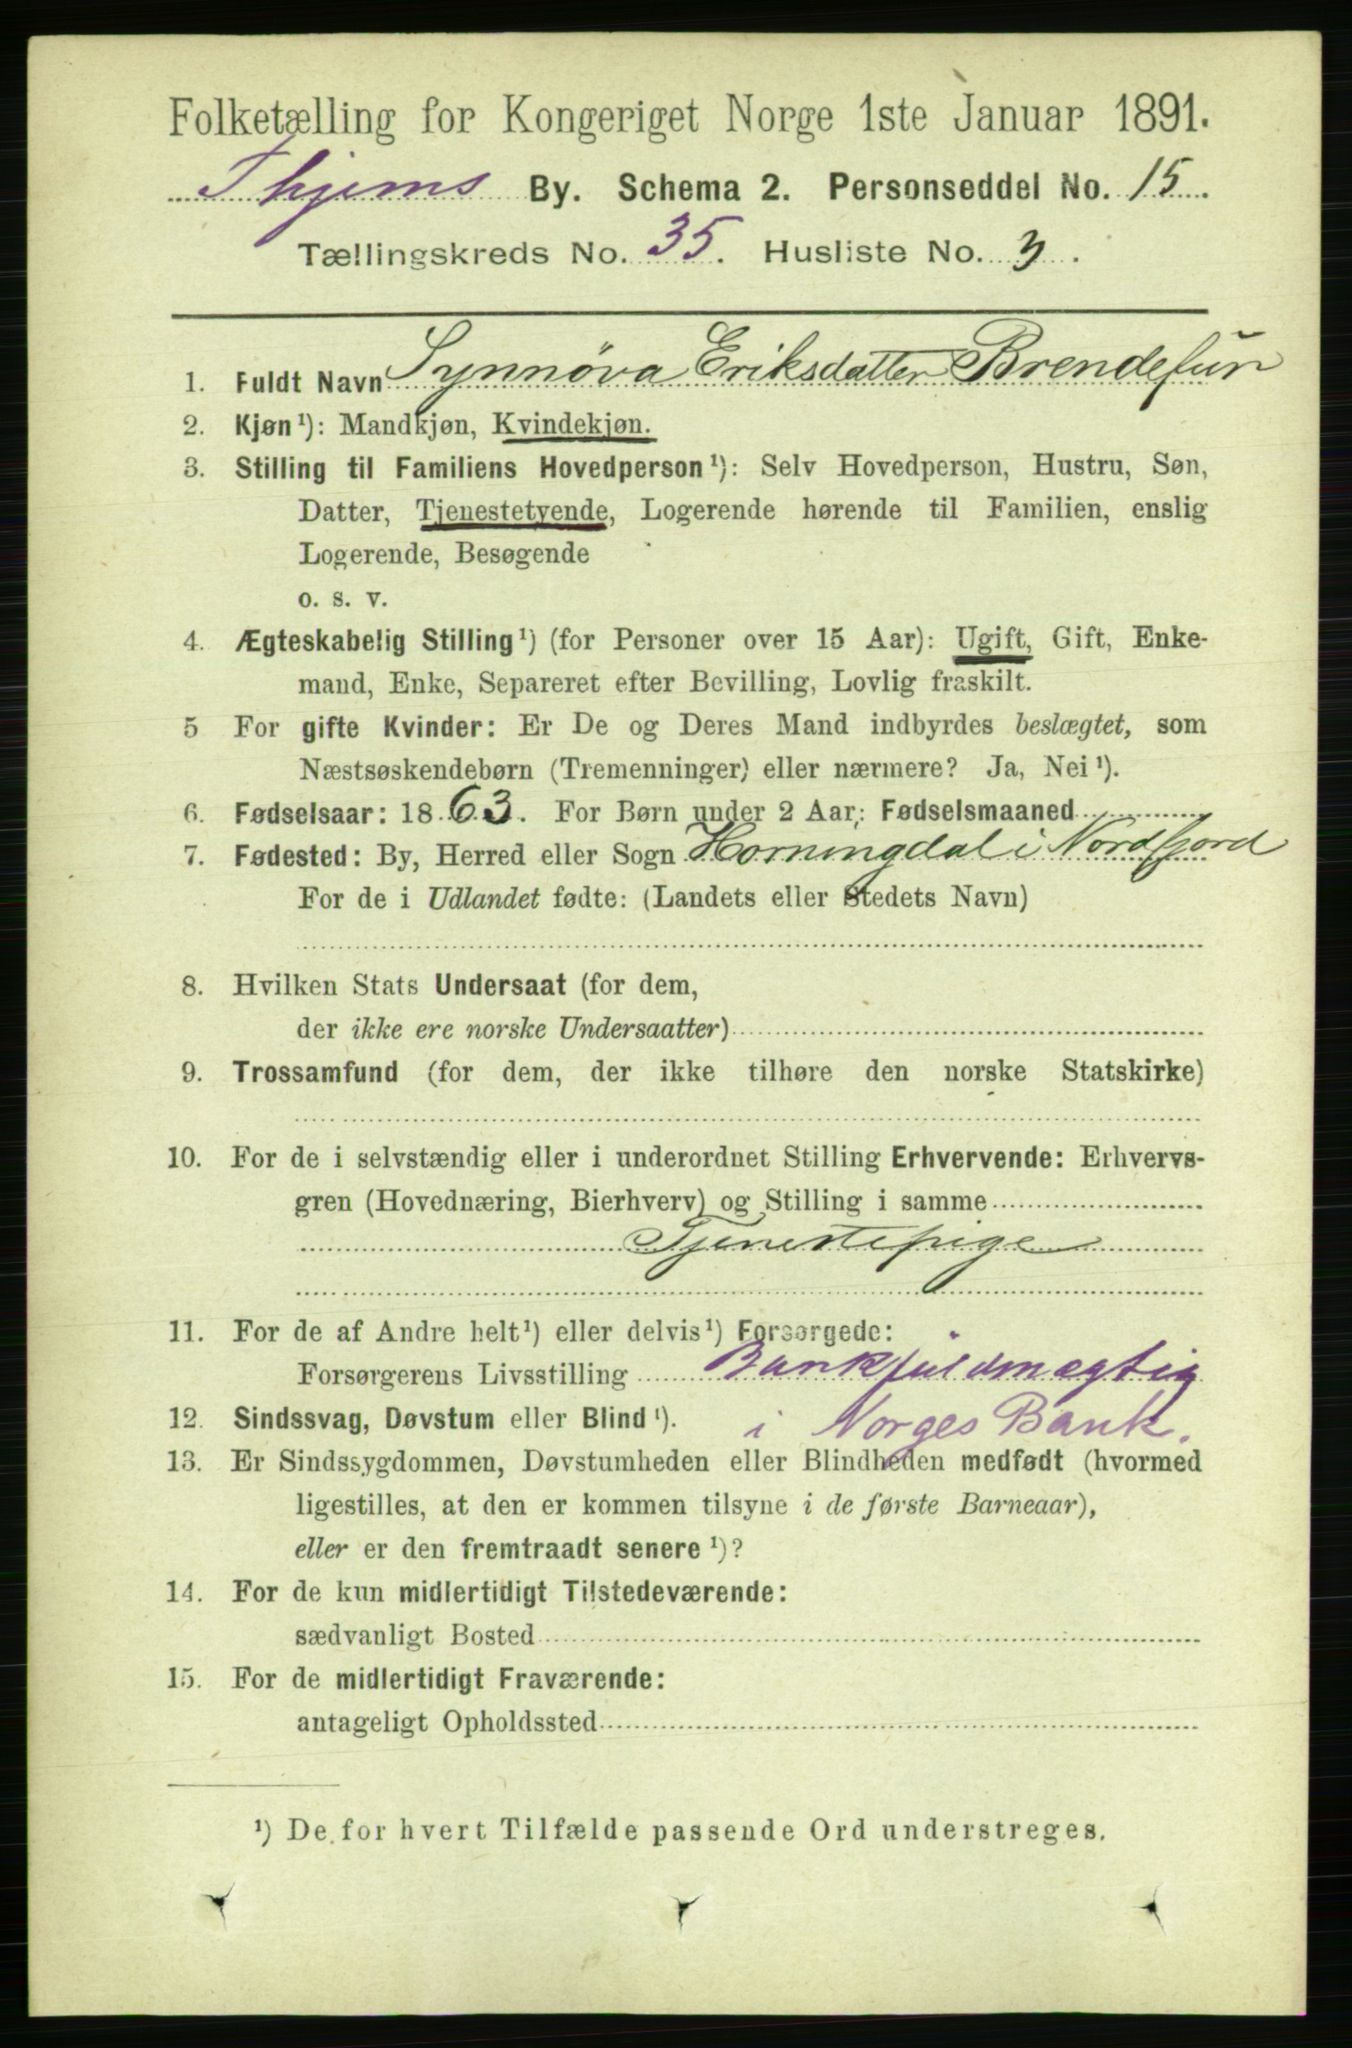 Folketælling for Kongeriget Norge 1ste Januar 1891.
Thjems By. Schema 2. Personseddel No. 15.
Tællingskreds No. 35. Husliste No. 3.
1. Fuldt Navn Synnöva Eriksdatter Brendefur
2. Kjøn¹): Mandkjøn, Kvindekjøn.
3. Stilling til Familiens Hovedperson¹): Selv Hovedperson, Hustru, Søn,
Datter, Tjenestetyende, Logerende hørende til Familien, enslig
Logerende, Besøgende
o. s. v.
4. Ægteskabelig Stilling¹) (for Personer over 15 Aar): Ugift, Gift, Enke-
mand, Enke, Separeret efter Bevilling, Lovlig fraskilt.
5 For gifte Kvinder: Er De og Deres Mand indbyrdes beslægtet, som
Næstsøskendebørn (Tremenninger) eller nærmere? Ja, Nei¹).
6. Fødselsaar: 1863. For Børn under 2 Aar: Fødselsmaaned
7. Fødested: By, Herred eller Sogn Horningdal i Nordfjord
For de i Udlandet fødte: (Landets eller Stedets Navn)
8. Hvilken Stats Undersaat (for dem,
der ikke ere norske Undersaatter)
9. Trossamfund (for dem, der ikke tilhøre den norske Statskirke)
10. For de i selvstændig eller i underordnet Stilling Erhvervende: Erhvervs-
gren (Hovednæring, Bierhverv) og Stilling i samme
Tjenestepige
11. For de af Andre helt¹) eller delvis¹) Forsørgede:
Forsørgerens Livsstilling Bankfuldmægtig
12. Sindssvag, Døvstum eller Blind¹). i Norges Bank.
13. Er Sindssygdommen, Døvstumheden eller Blindheden medfødt (hvormed
ligestilles, at den er kommen tilsyne i de første Barneaar),
eller er den fremtraadt senere¹)?
14. For de kun midlertidigt Tilstedeværende:
sædvanligt Bosted
15. For de midlertidigt Fraværende:
antageligt Opholdssted
¹) De for hvert Tilfælde passende Ord understreges.